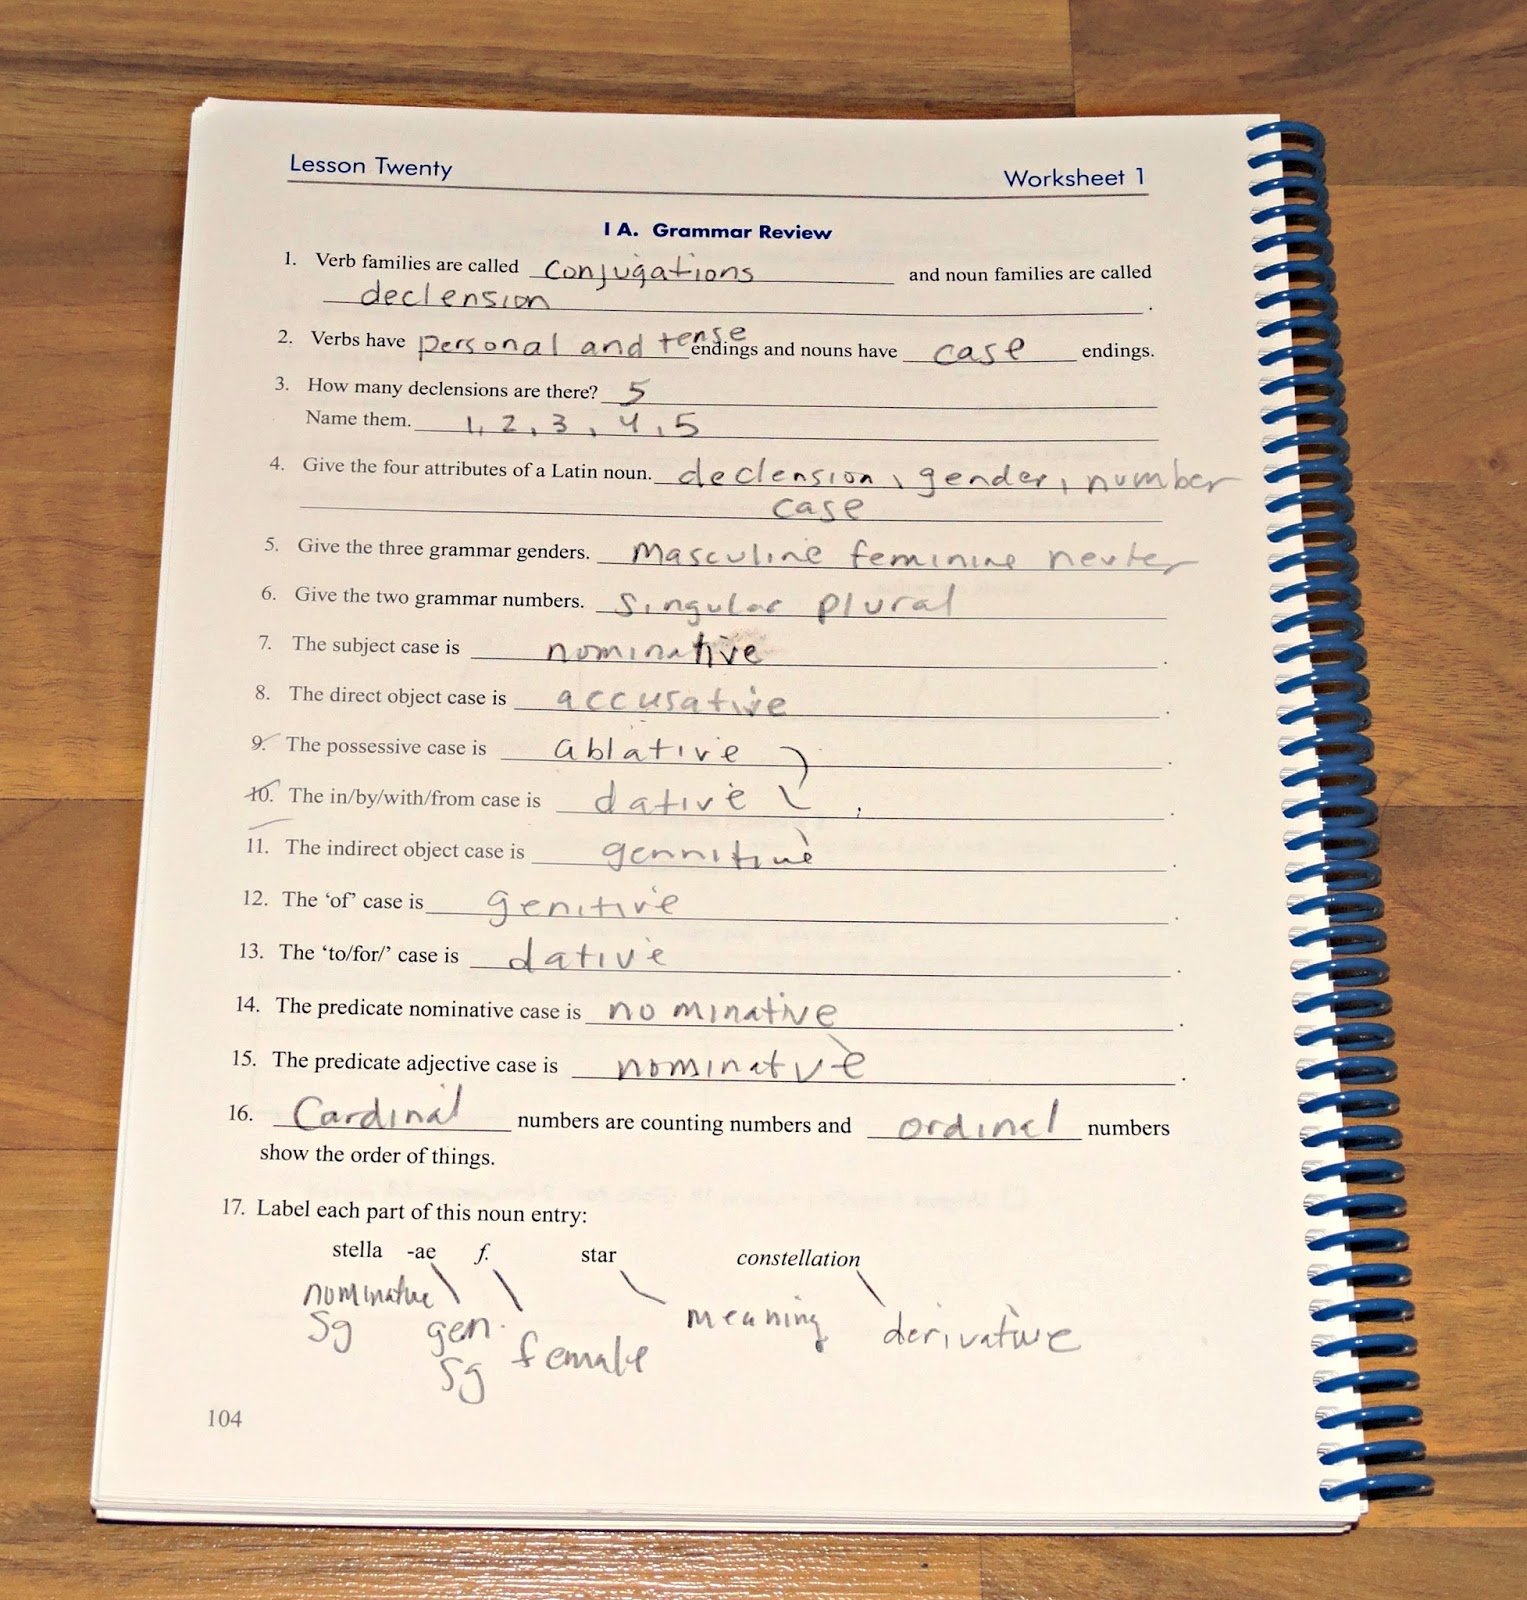 Lesson Twenty Worksheet 1
I A. Grammar Review
1. Verb families are called conjugations and noun families are called
declension .
2. Verbs have personal and tense endings and nouns have case endings.
3. How many declensions are there? 5
Name them. 1, 2, 3, 4, 5
4. Give the four attributes of a Latin noun. declension, gender, number
case
5. Give the three grammar genders. masculine feminine neuter
6. Give the two grammar numbers. singular plural
7. The subject case is nominative .
8. The direct object case is accusative .
9. The possessive case is ablative .
10. The in/by/with/from case is dative .
11. The indirect object case is gennitive .
12. The ‘of’ case is genitive .
13. The ‘to/for/’ case is dative .
14. The predicate nominative case is nominative .
15. The predicate adjective case is nominatve .
16. Cardinal numbers are counting numbers and ordinal numbers
show the order of things.
17. Label each part of this noun entry:
stella -ae f. star constellation
nominative gen. female meaning derivative
Sg Sg
104